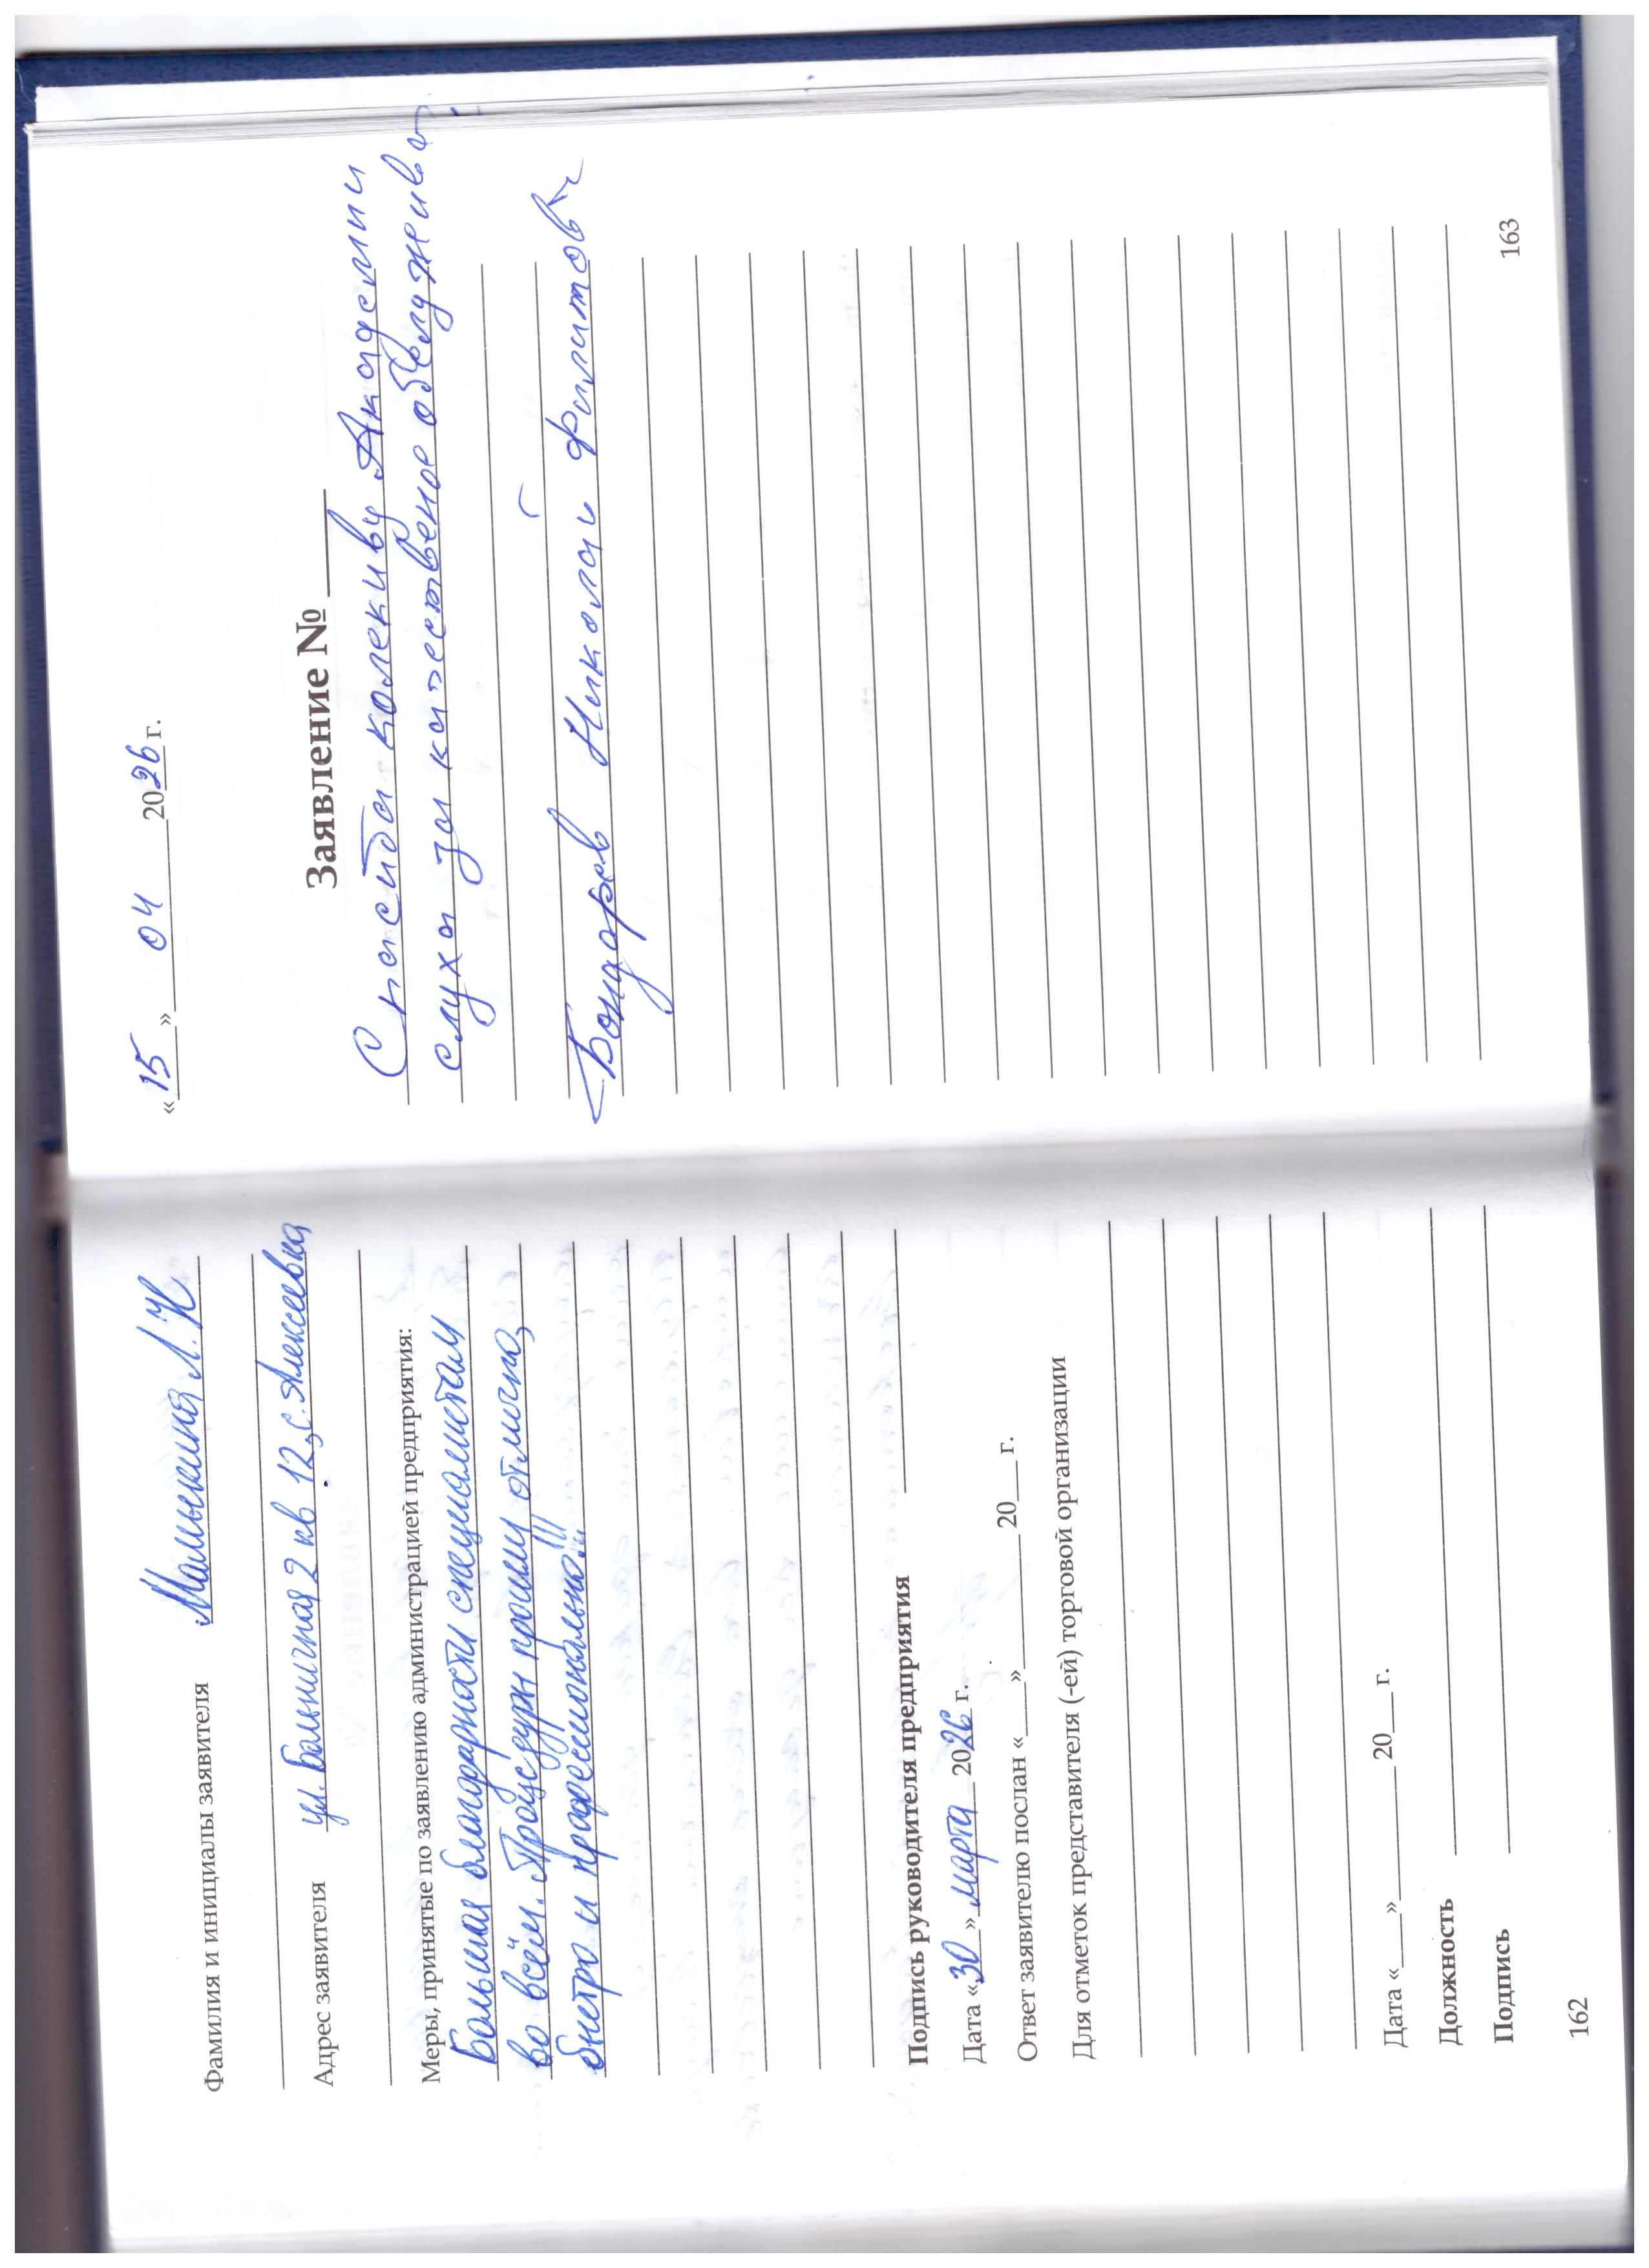 Фамилия и инициалы заявителя Малыхина Л.Н
Адрес заявителя ул. Больничная 2 кв 12, с. Алексеевка
Меры, принятые по заявлению администрацией предприятия:
Большая благодарность специалистам
во всём. Процедуры прошли отлично,
быстро и професионально!!!
Подпись руководителя предприятия
Дата «30» марта 2026 г.
Ответ заявителю послан «___» ________ 20___ г.
Для отметок представителя (-ей) торговой организации
Дата «___» ________ 20___ г.
Должность
Подпись
162
«15» 04 2026 г.
Заявление № ____
Спасибо колекиву Академии
слуха за качественое обслуживан
Бондарев Николай Филитович
163